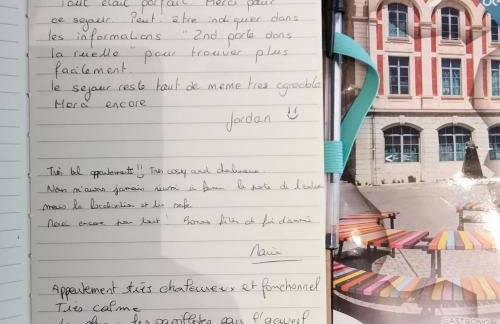 Tout était parfait. Merci pour
ce séjour. Peut-être indiquer dans
les informations "2nd porte dans
la ruelle" pour trouver plus
facilement.
le séjour reste tout de même très agréable
Merci encore
Jordan
Très bel appartement!! Très cosy and chaleureux
Nous n'avons jamais réussi à fermer la porte de l'
mais la localisation et les
Merci encore pour tout! Bonnes fêtes de fin d'année
Marie
Appartement très chaleureux et fonctionnel
Très calme
pour l'accueil
GASTRONOM